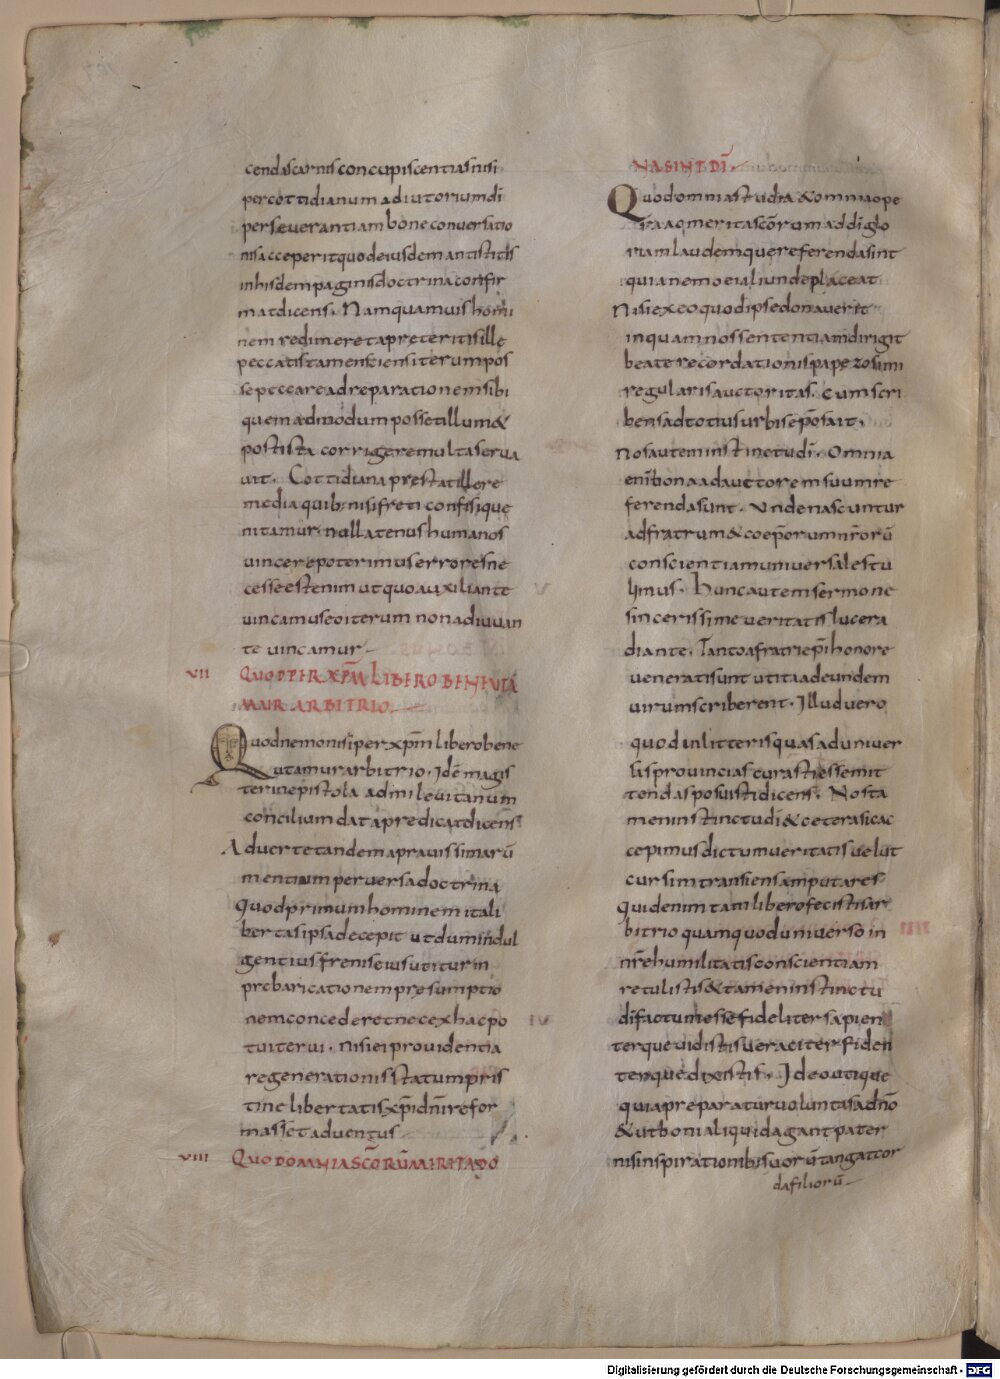 cendas carnis concupiscentias nisi
per cottidianum adiutorium dī
perseverantiam bone conversatio
nis acceperit quod eiusdem antistitis
in hisdem paginis doctrina confir
mat dicens. Nam quamvis homi
nem redimeret a preteritis ille
peccatis tamen sciens iterum pos
se peccare ad reparationem sibi
quemadmodum posset illum &
post ista corrigere multa serva
vit. Cottidiana prestat ille re
media quib; nisi freti confisique
nitamur. nullatenus humanos
vincere poterimus errores ne
cesse est enim ut quo auxiliante
vincamus eo iterum non adiuvan
te vincamur
VII QUOD PER XP̄M LIBERO BENE UTA
MUR ARBITRIO
Quod nemo nisi per xp̄m libero bene
utamur arbitrio. Idē magis
ter in epistola ad milevitanum
concilium data predicat dicens
Adverte tandem a pravissimarū
mentium perversa doctrina
quod primum hominem ita li
bertas ipsa decepit ut dum indul
gentius frenis eius utitur in
prebaricationem presumptio
nem concederet nec ex hac po
tuit erui. nisi ei providentia
regenerationis statum pris
tine libertatis xp̄i dn̄i refor
masset adventus
VIII QUOD OMNIA SC̄ORŪ MERITA DO
NA SINT DĪ
Quod omnia studia & omnia ope
ra ac merita sc̄orum ad dī glo
riam laudemque referenda sint
quia nemo ei aliunde placeat
Nisi ex eo quod ipse donaverit
in quam nos sententiam dirigit
beate recordationis pape zosimi
regularis auctoritas. cum scri
bens ad totius urbis ep̄os ait.
Nos autem instinctu dī. Omnia
enī bona ad auctorem suum re
ferenda sunt. Unde nascuntur
ad fratrum & coep̄orum nr̄orū
conscientiam universa restu
limus. Hunc autem sermone
sincerissime veritatis luce ra
diante. Tanto afratri ep̄i honore
venerati sunt ut ita ad eundem
virum scriberent. Illud vero
quod in litteris quas ad univer
sas provincias curastis se mit
tendas posuistis dicens. Nos ta
men instinctu dī & cetera sic ac
cepimus dictum veritatis velut
cursim transiens amputares
qui denim tam libero fecistis ar
bitrio quam quod universo in
nr̄e humilitatis conscientiam
retulistis & tamen instinctu
dī factum esse fideliter sapien
terque vidistis veraciter fiden
terque dixistis. Ideo utique
quia preparatur voluntas a dn̄o
& ut boni aliquid agant pater
nis inspirationibus suorū tangat cor
da filiorū